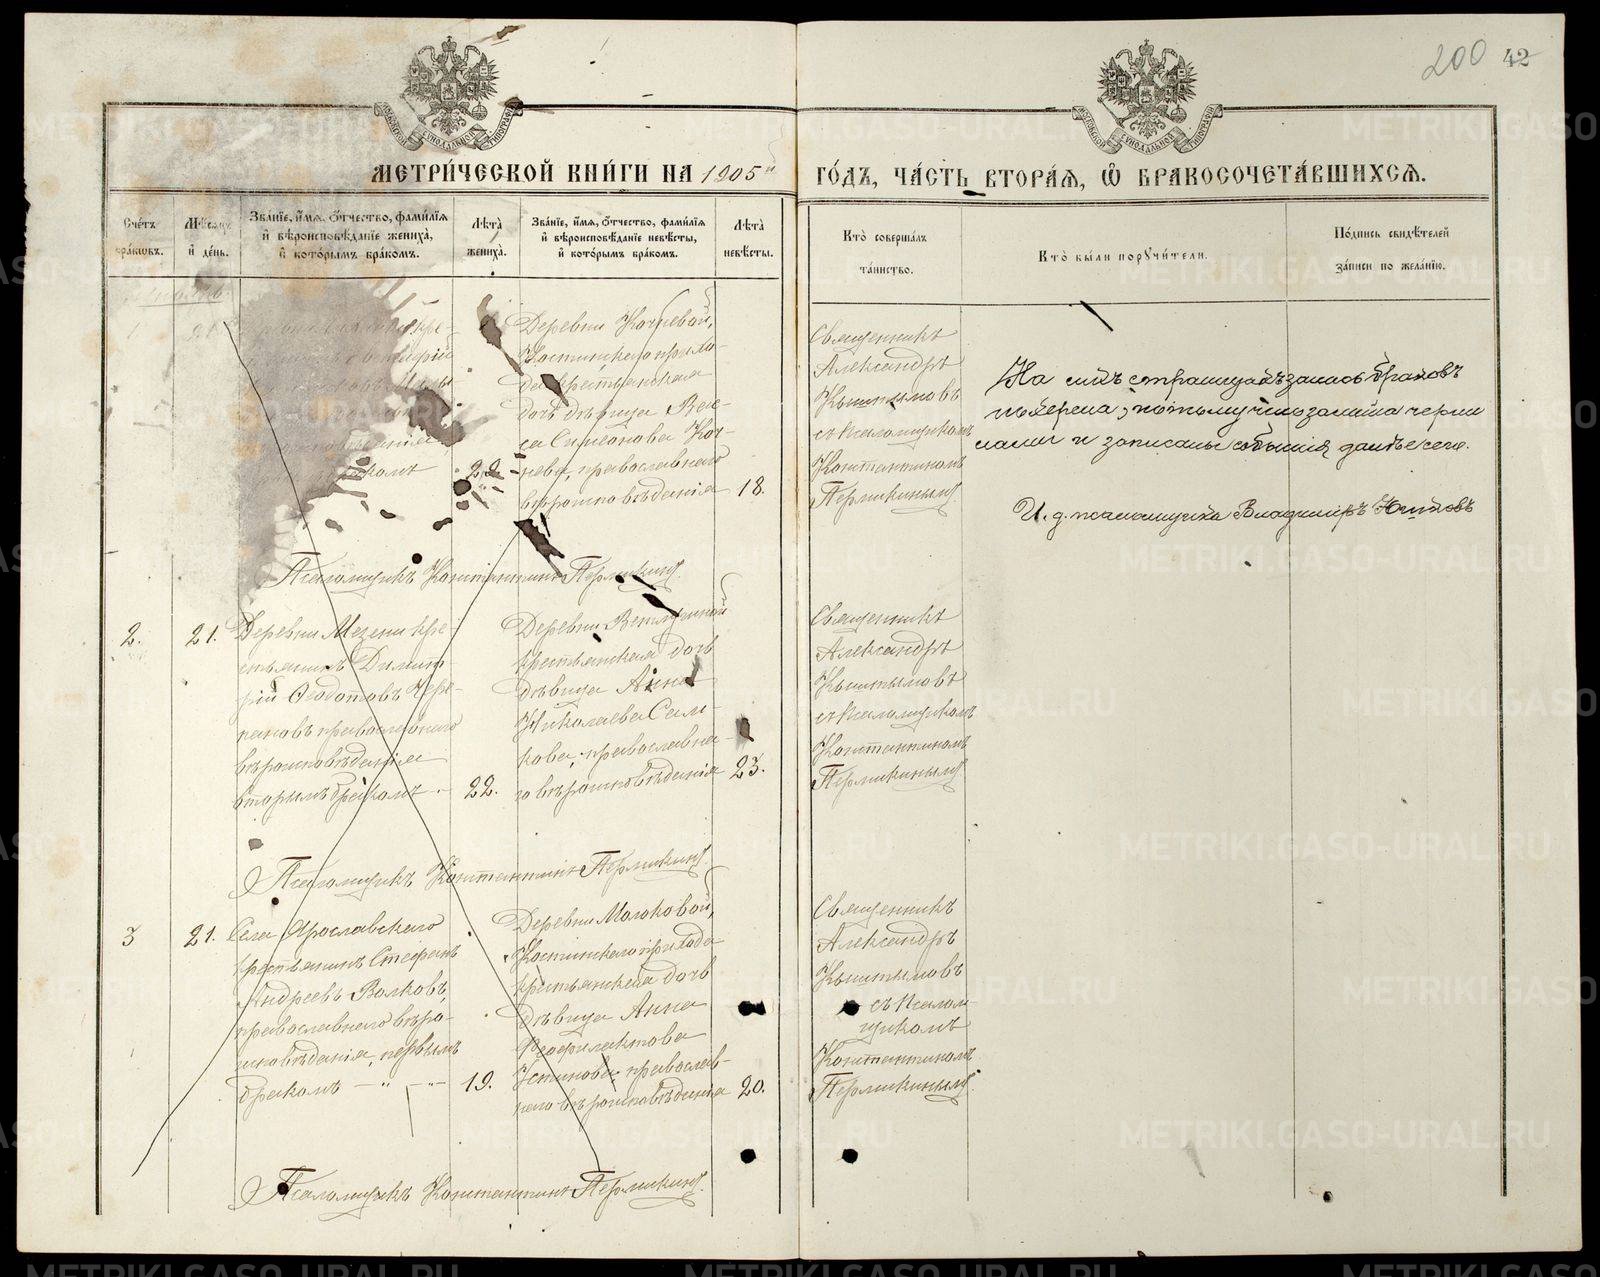 200 42
МЕТРИ́ЧЕСКОЙ КНИ́ГИ НА 1905й ГО́ДЪ, ЧА́СТЬ ВТОРА́Я, Ѡ БРАКОСОЧЕТА́ВШИХСЯ.
МОСКОВСКОЙ СѴНОДАЛЬНОЙ ТИПОГРАФІИ
МОСКОВСКОЙ СѴНОДАЛЬНОЙ ТИПОГРАФІИ
Сче́тъ бра́кѡвъ.
Мѣ́сяцъ и҆ де́нь.
Зва́ніе, и҆́мя, ѻ҆́тчество, фами́лїя и҆ вѣроисповѣ́даніе жениха̀, и҆ кото́рымъ бра́комъ.
Лѣ́та жениха̀.
Зва́ніе, и҆́мя, ѻ҆́тчество, фами́лїя и҆ вѣроисповѣ́даніе невѣ́сты, и҆ кото́рымъ бра́комъ.
Лѣ́та невѣ́сты.
Кто̀ соверша́лъ та́инство.
Кто̀ бы́ли порꙋчи́тели.
По́дпись свидѣ́телей за́писи по жела́нію.
1
21
22
Деревни Кочневой,
Костинскаго прихо-
да крестьянская
дочь дѣвица
Симеонова Коч-
нева, православнаго
вѣроисповѣданія
18.
Священникъ
Александръ
Кыштымовъ
съ псаломщикомъ
Константиномъ
Пермикинымъ
На сихъ страницахъ запись браковъ
потому что залита черни
лами и записаны событія далѣе сего.
И. д. псаломщика Владимиръ
Псаломщикъ Константинъ Пермикинъ.
2.
21.
Деревни Мезени кре-
стьянинъ Димит-
рій Ѳедотовъ Чере-
пановъ православнаго
вѣроисповѣданія
вторымъ бракомъ
22.
Деревни
крестьянская дочь
дѣвица Анна
Николаева Сал-
кова, православна-
го вѣроисповѣданія
23.
Священникъ
Александръ
Кыштымовъ
съ псаломщикомъ
Константиномъ
Пермикинымъ
Псаломщикъ Константинъ Пермикинъ.
3
21.
Села Ярославскаго
крестьянинъ Стефанъ
Андреевъ Волковъ,
православнаго вѣро-
исповѣданія, первымъ
бракомъ — „ —
19.
Деревни Молоковой,
Костинскаго прихода
крестьянская дочь
дѣвица Анна
Феофилактова
Устинова, православ-
наго вѣроисповѣданія
20.
Священникъ
Александръ
Кыштымовъ
съ псалом-
щикомъ
Константиномъ
Пермикинымъ
Псаломщикъ Константинъ Пермикинъ.
METRIKI.GASO-URAL.RU